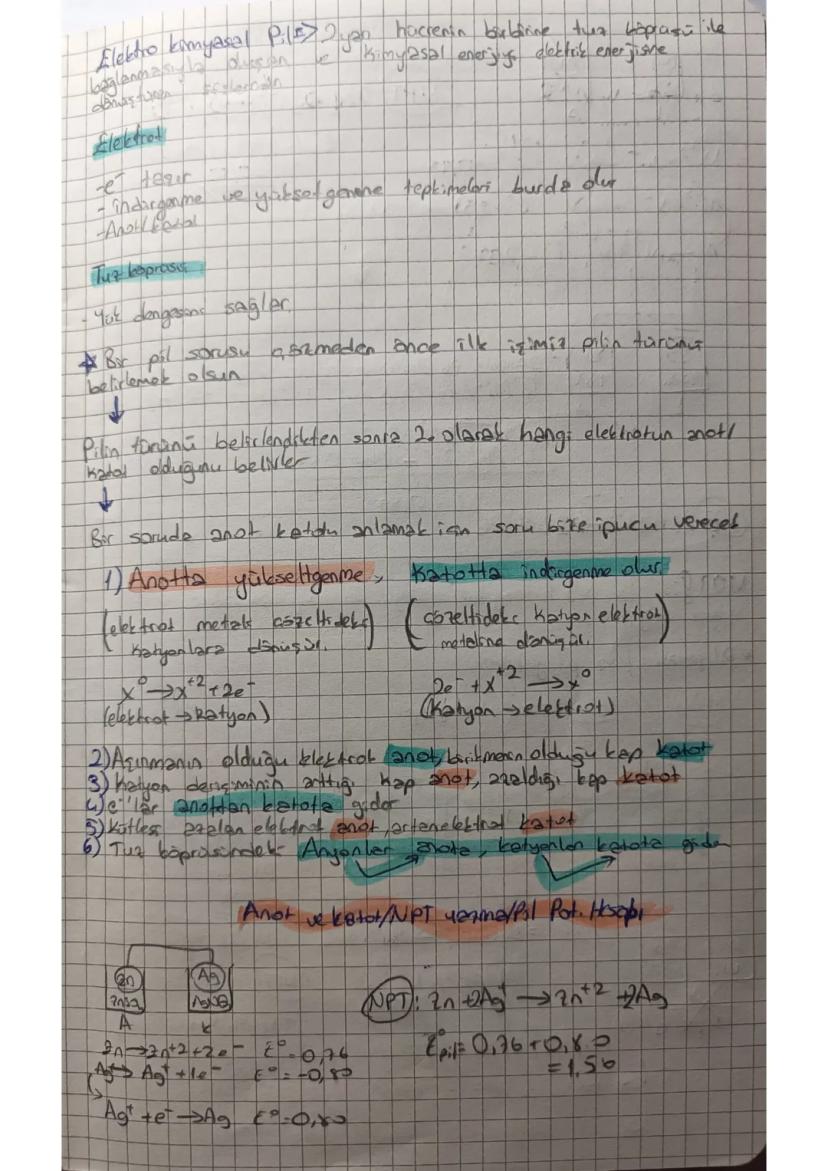 Elektro kimyasal Pil => 2 yarı hücrenin birbirine tuz köprüsü ile
bağlanmasıyla oluşan ve kimyasal enerjiyi elektrik enerjisine
dönüştüren
Elektrot
-e⁻ taşır
-indirgenme ve yükseltgenme tepkimeleri burda olur
-Anot/katot
Tuz köprüsü
- Yük dengesini sağlar.
★ Bir pil sorusu çözmeden önce ilk işimiz pilin türünü
belirlemek olsun
↓
Pilin türünü belirlendikten sonra 2. olarak hangi elektrotun anot/
katot olduğunu belirler
↓
Bir soruda anot katotu anlamak için soru bize ipucu verecek
1) Anotta yükseltgenme, Katotta indirgenme olur.
(elektrot metali çözeltideki (çözeltideki katyon elektrot)
katyonlara dönüşür.) metaline dönüşür.
X⁰ → X⁺² + 2e⁻ 2e⁻ + X⁺² → X⁰
(elektrot → katyon) (Katyon → elektrot)
2) Aşınmanın olduğu elektrot anot, birikmenin olduğu kap katot
3) Katyon derişiminin arttığı kap anot, azaldığı kap katot
4) e⁻'lar anottan katota gider
5) Kütlesi azalan elektrot anot, artan elektrot katot
6) Tuz köprüsündeki Anyonlar anota, katyonlar katota gider
Anot ve katot/NPT yazma/Pil Pot. Hesabı
Zn Ag
A K
NPT: Zn + 2Ag⁺ → Zn⁺² + 2Ag
Zn → Zn+2 + 2e⁻ E⁰=0,76
E⁰pil= 0,76 + 0,80
Ag → Ag⁺ + 1e⁻ E⁰= -0,80
= 1,56
Ag⁺ + e⁻ → Ag E⁰=0,80